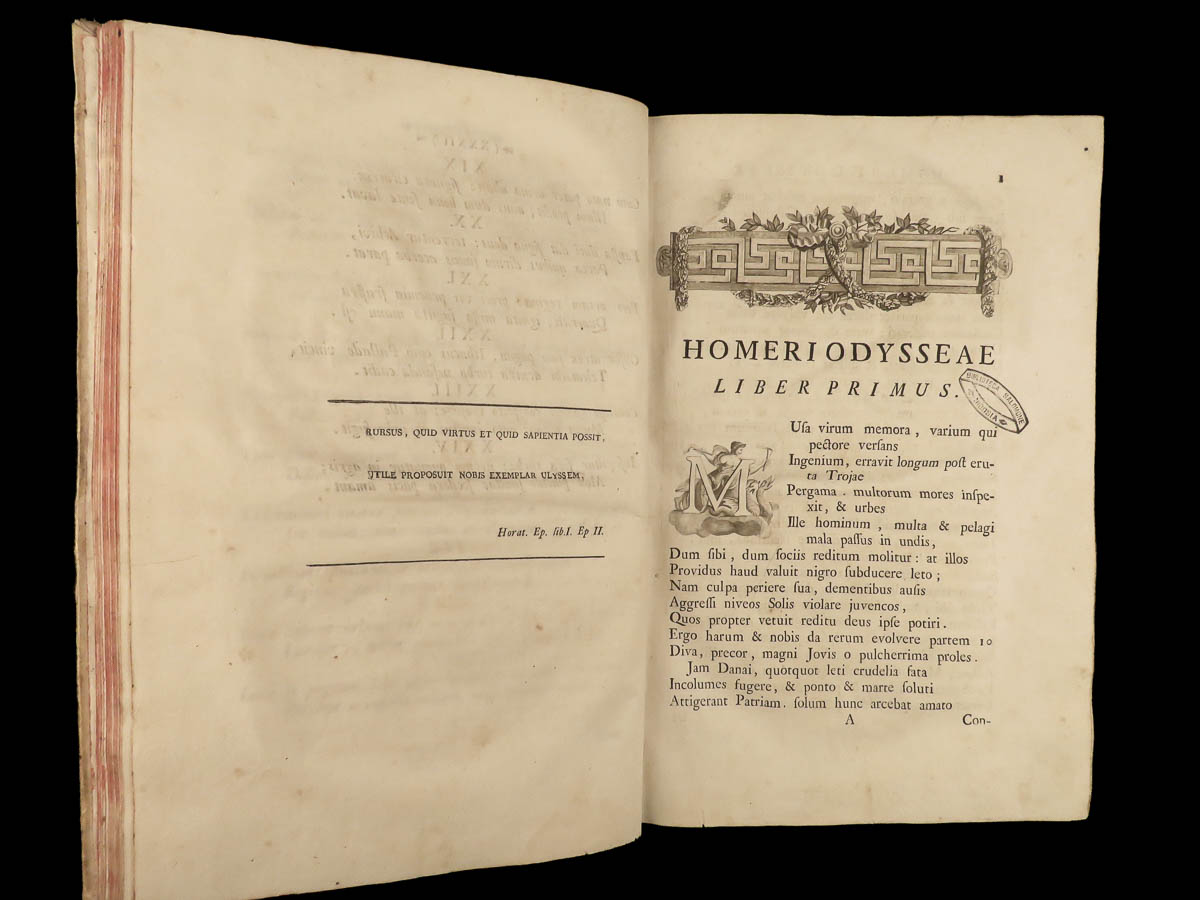 RURSUS, QUID VIRTUS ET QUID SAPIENTIA POSSIT,
UTILE PROPOSUIT NOBIS EXEMPLAR ULYSSEM,
Horat. Ep. lib.I. Ep II.
1
HOMERI ODYSSEAE
LIBER PRIMUS.
BIBLIOTECA
MUsa virum memora, varium qui
pectore versans
Ingenium, erravit longum poſt eru-
ta Trojae
Pergama. multorum mores inſpe-
xit, & urbes
Ille hominum, multa & pelagi
mala paſſus in undis,
Dum ſibi, dum ſociis reditum molitur: at illos
Providus haud valuit nigro ſubducere leto;
Nam culpa periere ſua, dementibus auſis
Aggreſſi niveos Solis violare juvencos,
Quos propter vetuit reditu deus ipſe potiri.
Ergo harum & nobis da rerum evolvere partem 10
Diva, precor, magni Jovis o pulcherrima proles.
Jam Danai, quotquot leti crudelia fata
Incolumes fugere, & ponto & marte ſoluti
Attigerant Patriam. ſolum hunc arcebat amato
A
Con-